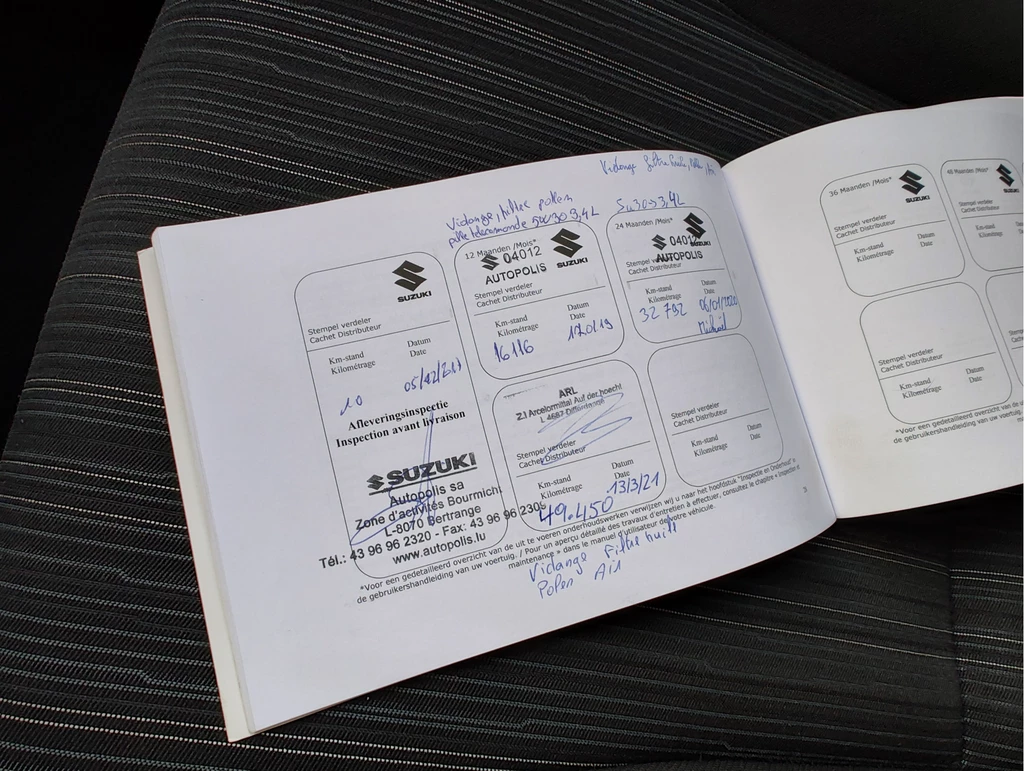 Vidange, filtre pollen
pile télécommande 5W30 3,4L
Vidange filtre huile,
5W30 3,4L
SUZUKI
Stempel verdeler
Cachet Distributeur
Km-stand Datum
Kilométrage Date
10
Afleveringsinspectie
Inspection avant livraison
SUZUKI
Autopolis sa
Zone d'activités Bourmicht
L-8070 Bertrange
Tél.: 43 96 96 2320 - Fax: 43 96 96 2309
www.autopolis.lu
12 Maanden /Mois*
04012
AUTOPOLIS
SUZUKI
Stempel verdeler
Cachet Distributeur
Km-stand Datum
Kilométrage Date
16116
24 Maanden /Mois*
04012
AUTOPOLIS
SUZUKI
Stempel verdeler
Cachet Distributeur
Km-stand Datum
Kilométrage Date
32 792 06/01/2020
Michaël
ARL
Z.I Arcelormittal Auf der hoecht
L 4687 Differdange
Stempel verdeler
Cachet Distributeur
Km-stand Datum
Kilométrage Date
49.450 13/3/21
Stempel verdeler
Cachet Distributeur
Km-stand Datum
Kilométrage Date
*Voor een gedetailleerd overzicht van de uit te voeren onderhoudswerken verwijzen wij u naar het hoofdstuk "Inspectie en Onderhoud" in
de gebruikershandleiding van uw voertuig. / Pour un aperçu détaillé des travaux d'entretien à effectuer, consultez le chapitre « Inspection et
maintenance » dans le manuel d'utilisateur de votre véhicule.
Vidange Filtre huile
Polen Air
36 Maanden /Mois*
SUZUKI
Stempel verdeler
Cachet Distributeur
Km-stand Datum
Kilométrage Date
48 Maanden /Mois*
SUZUKI
Stempel verdeler
Cachet Distributeur
Km-stand
Kilométrage
Stempel verdeler
Cachet Distributeur
Km-stand Datum
Kilométrage Date
*Voor een gedetailleerd overzicht van
de gebruikershandleiding van uw voertuig.